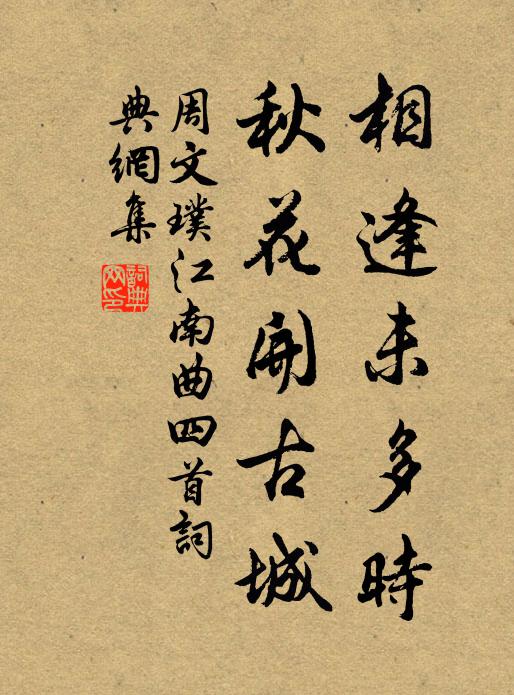 相逢未多時
秋花開古城
周文璞江南曲四首詞
典網集
詞典
网印